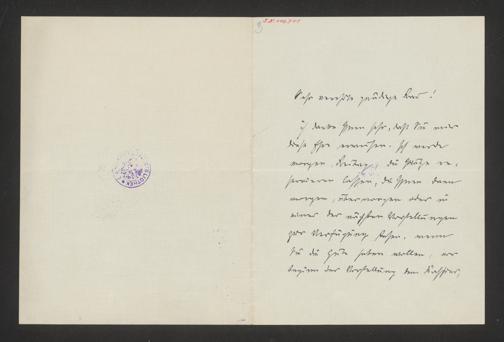 Sehr verehrte gnädige Frau!
ich danke Ihnen sehr, daß Sie mir
diese Ehre erweisen. Ich werde
morgen, Freitag, die Plätze re-
servieren lassen, die Ihnen dann
morgen, übermorgen oder in
einer der nächsten Vorstellungen
zur Verfügung stehen, wenn
Sie die Güte haben wollen, vor
Beginn der Vorstellung dem Kassier,